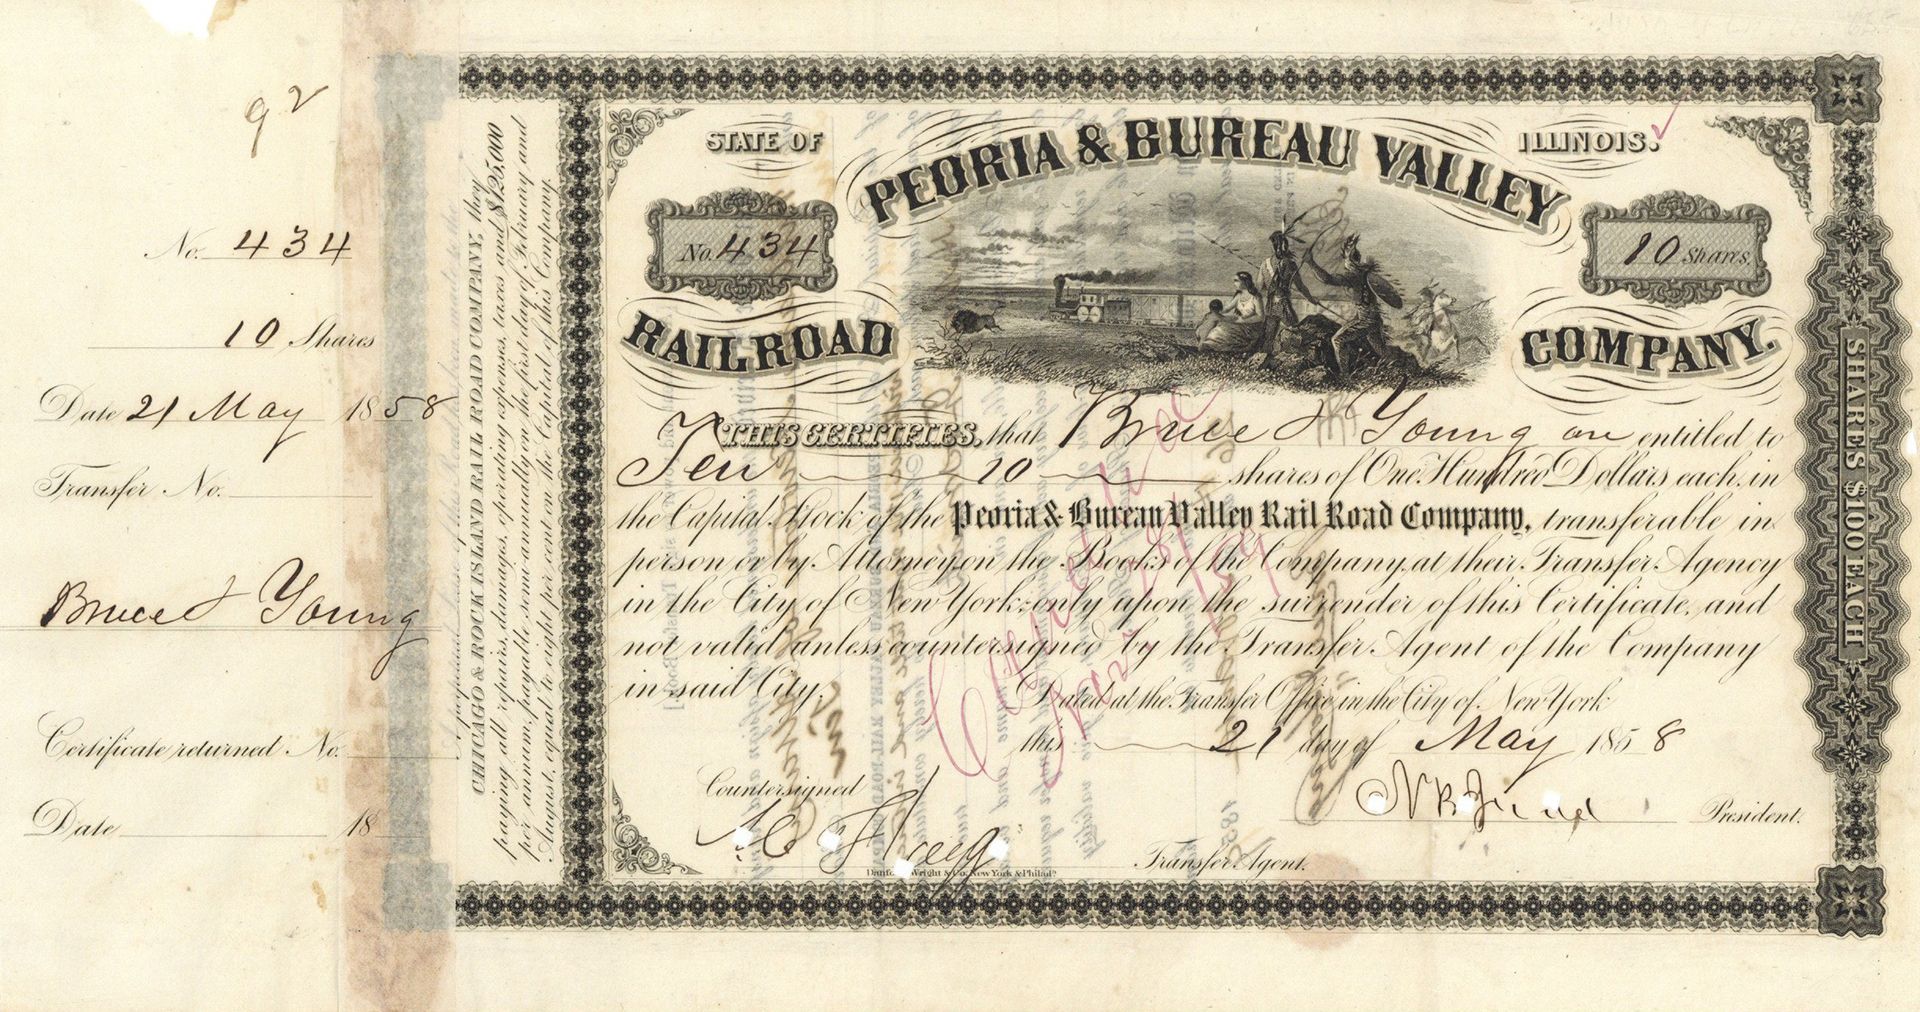 92
No. 434
10 Shares
Date 21 May 1858
Transfer No.
Bruce & Young
Certificate returned No.
Date 18
CHICAGO & ROCK ISLAND RAIL ROAD COMPANY, they
paying all repairs, damages, operating expenses, taxes and $125,000
per annum, payable semi annually on the first day of February and
August, equal to eight per cent on the Capital of this Company.
STATE OF
ILLINOIS.
PEORIA & BUREAU VALLEY
No. 434
10 Shares.
RAILROAD
COMPANY.
THIS CERTIFIES, that Bruce & Young are entitled to
Ten 10 shares of One Hundred Dollars each, in
the Capital Stock of the Peoria & Bureau Valley Rail Road Company, transferable in
person or by Attorney on the Books of the Company, at their Transfer Agency
in the City of New York, only upon the surrender of this Certificate, and
not valid unless countersigned by the Transfer Agent of the Company
in said City.
Dated at the Transfer Office in the City of New York
this 21 day of May 1858
Cancelled
Jan 31/59
Countersigned
President.
Transfer Agent.
Danforth, Wright & Co. New York & Philada
SHARES $100 EACH